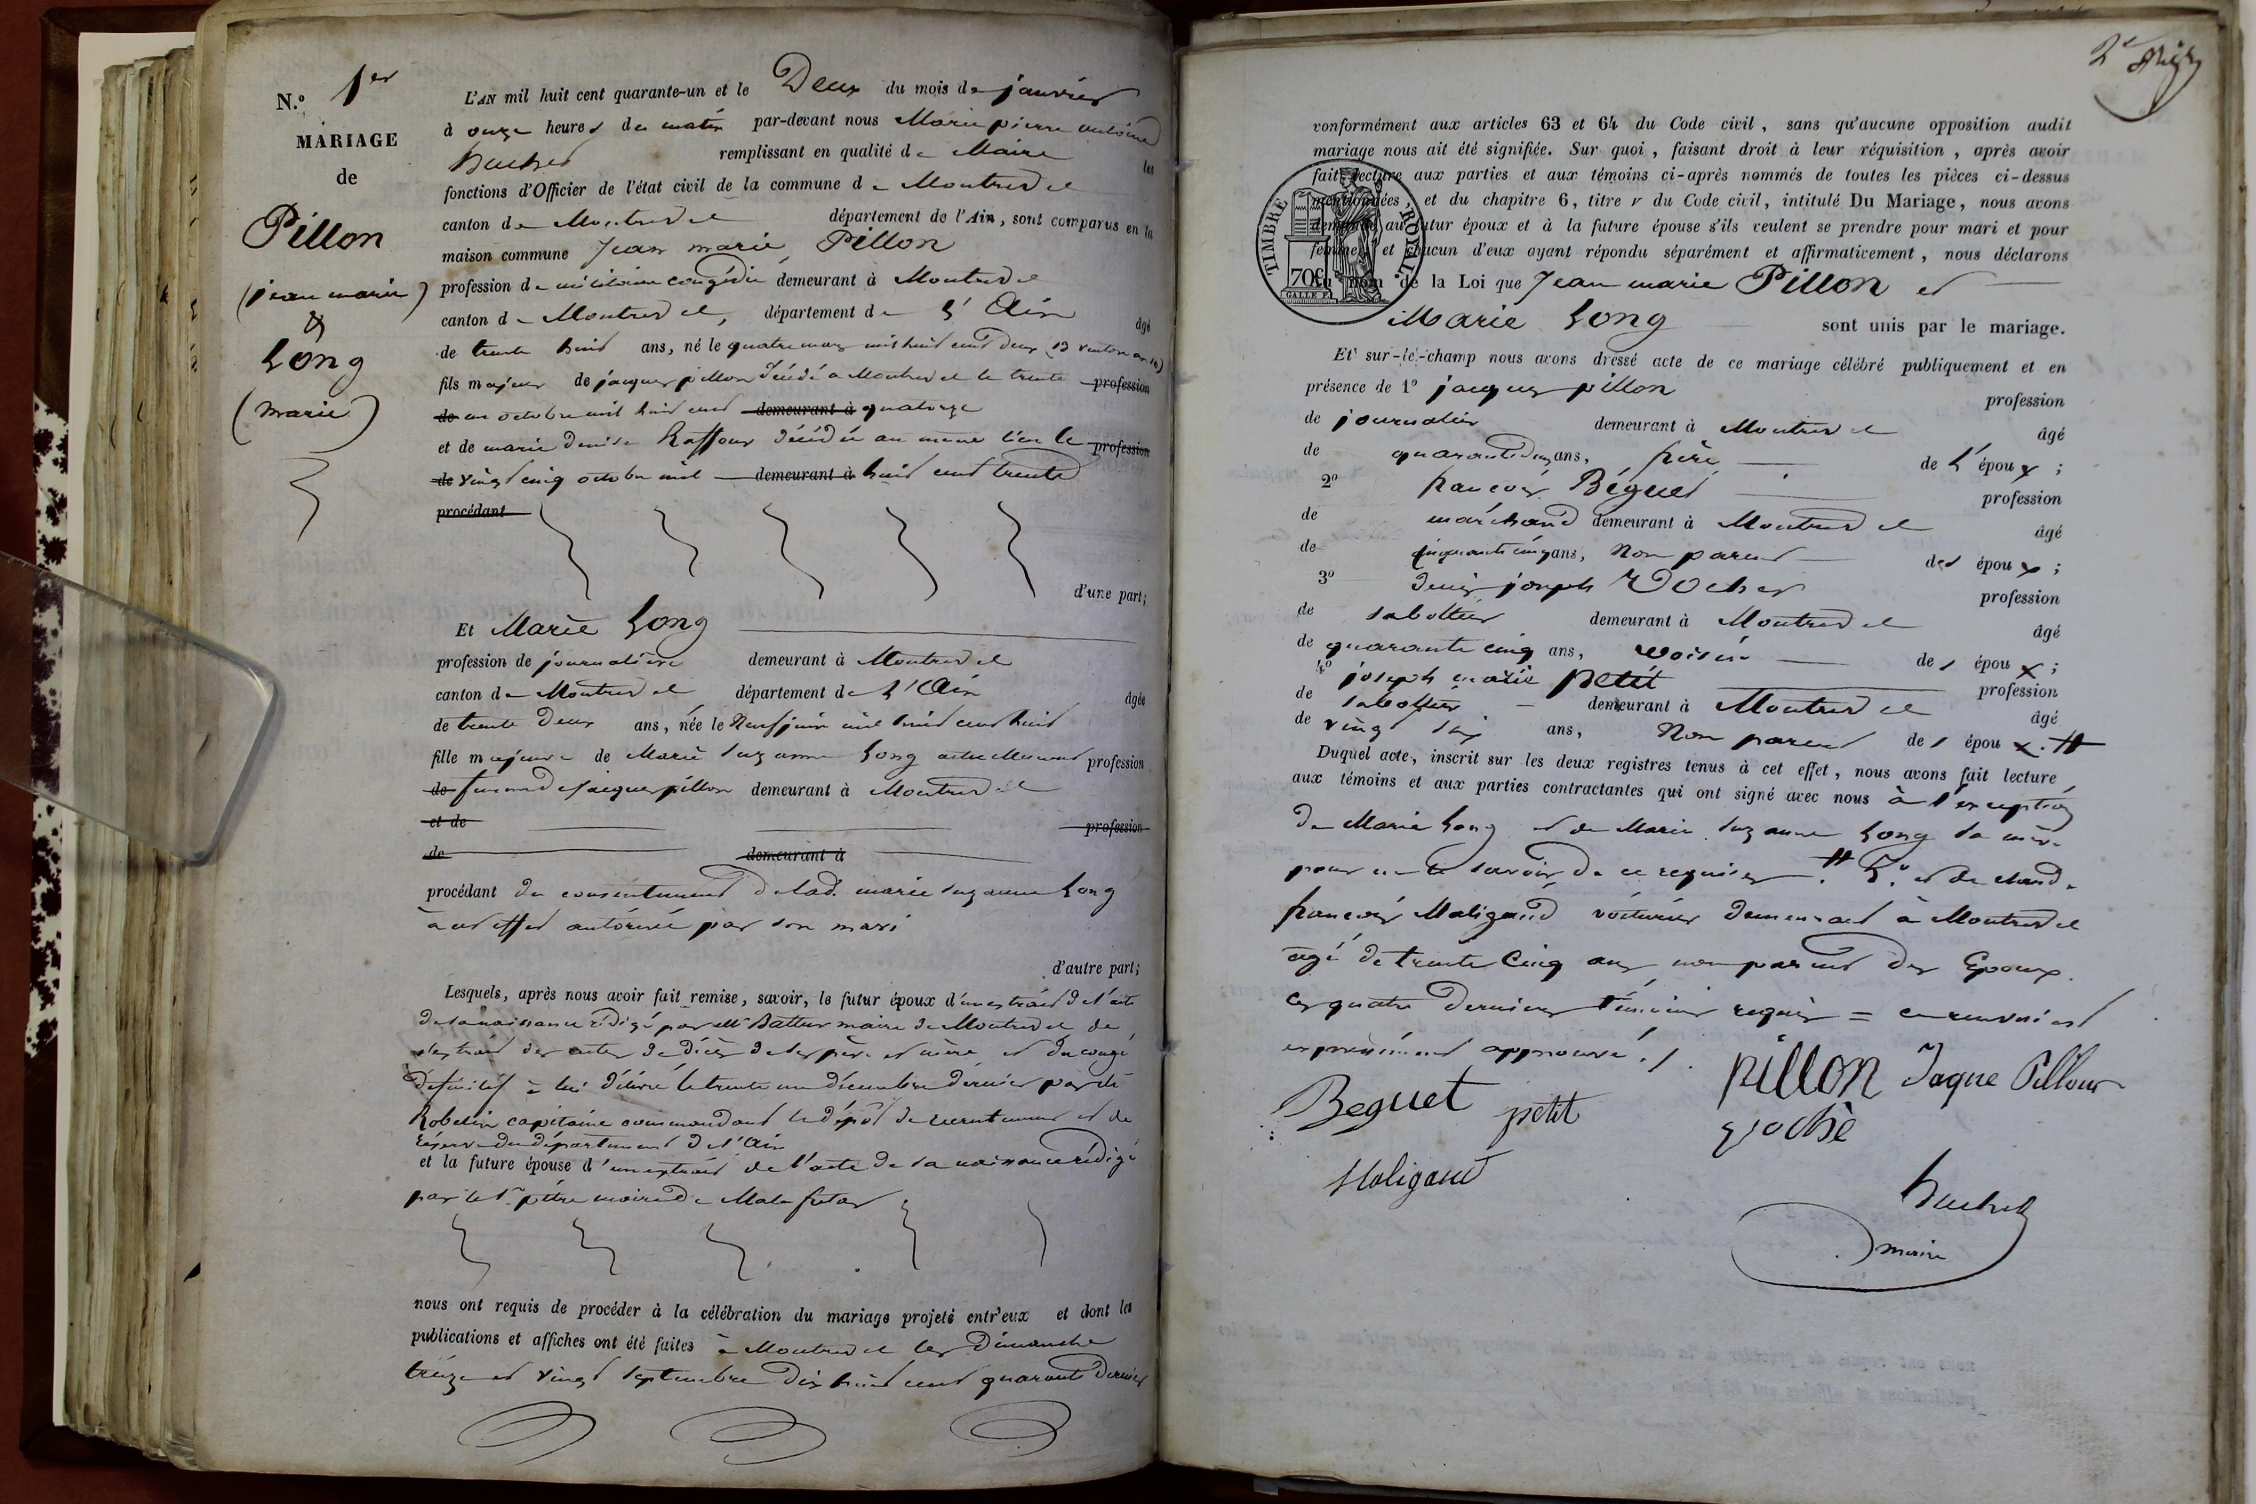 N.º 1er
MARIAGE
de
Pillon
(jean marie)
&
Long
(marie)
L'AN mil huit cent quarante-un et le Deux du mois de janvier
à onze heures du matin par-devant nous Marie pierre antoine
remplissant en qualité de Maire les
fonctions d'Officier de l'état civil de la commune de Montrevel
canton de Montrevel département de l'Ain, sont comparus en la
maison commune Jean marie Pillon
profession de militaire congédié demeurant à Montrevel
canton de Montrevel, département de L'Ain âgé
de trente huit ans, né le quatre mars mil huit cent deux (13 ventose an 10)
fils majeur de jacques pillon décédé a Montrevel le trente profession
de un octobre mil huit cent demeurant à quatorze
et de marie denise Raffour décédée au même lieu le profession
de vingt cinq octobre mil demeurant à huit cent trente
procédant
d'une part;
Et Marie Long
profession de journalière demeurant à Montrevel
canton de Montrevel département de L'Ain âgée
de trente deux ans, née le Neuf juin mil huit cent huit
fille majeure de Marie Suzanne Long actuellement profession
de femme de jacques pillon demeurant à Montrevel
et de profession
de demeurant à
procédant du consentement de lad. marie suzanne Long
à cet effet autorisée par son mari
d'autre part;
Lesquels, après nous avoir fait remise, savoir, le futur époux d'un extrait de l'acte
de sa naissance rédigé par Mr Battur maire de Montrevel de
extrait des actes de décès de ses père et mère et du congé
définitif à lui délivré le trente un décembre dernier par Mr
Robelin capitaine commandant le dépôt de recrutement et de
réserve du département de l'Ain
et la future épouse d'un extrait de l'acte de sa naissance rédigé
par le Sr maire de Malafretaz
nous ont requis de procéder à la célébration du mariage projeté entr'eux et dont les
publications et affiches ont été faites à Montrevel les Dimanche
treize et vingt septembre dix huit cent quarante dernier
2e
conformément aux articles 63 et 64 du Code civil, sans qu'aucune opposition audit
mariage nous ait été signifiée. Sur quoi, faisant droit à leur réquisition, après avoir
fait lecture aux parties et aux témoins ci-après nommés de toutes les pièces ci-dessus
mentionnées, et du chapitre 6, titre v du Code civil, intitulé Du Mariage, nous avons
demandé au futur époux et à la future épouse s'ils veulent se prendre pour mari et pour
femme, et chacun d'eux ayant répondu séparément et affirmativement, nous déclarons
au nom de la Loi que Jean marie Pillon et
TIMBRE ROYAL.
70c
Marie Long sont unis par le mariage.
Et sur-le-champ nous avons dressé acte de ce mariage célébré publiquement et en
présence de 1º jacques pillon profession
de journalier demeurant à Montrevel âgé
de quarante deux ans, frère de L'époux;
2º françois Béguet profession
de marchand demeurant à Montrevel âgé
de cinquante cinq ans, Non parent des époux;
3º denis joseph profession
de sabottier demeurant à Montrevel âgé
de quarante cinq ans, voisin des époux;
4º joseph marie petit profession
de sabottier demeurant à Montrevel âgé
de vingt six ans, Non parent des époux. #
Duquel acte, inscrit sur les deux registres tenus à cet effet, nous avons fait lecture
aux témoins et aux parties contractantes qui ont signé avec nous à l'exception
de Marie Long et de Marie suzanne Long sa mère
pour ne le savoir de ce requises # 5º et de claude
françois Maligand voiturier demeurant à Montrevel
agé de trente Cinq ans non parent des Epoux.
ces quatre derniers témoins requis = ce renvoi est
expressément approuvé ./.
pillon Jaque Pillon
Beguet petit
Maligand
maire